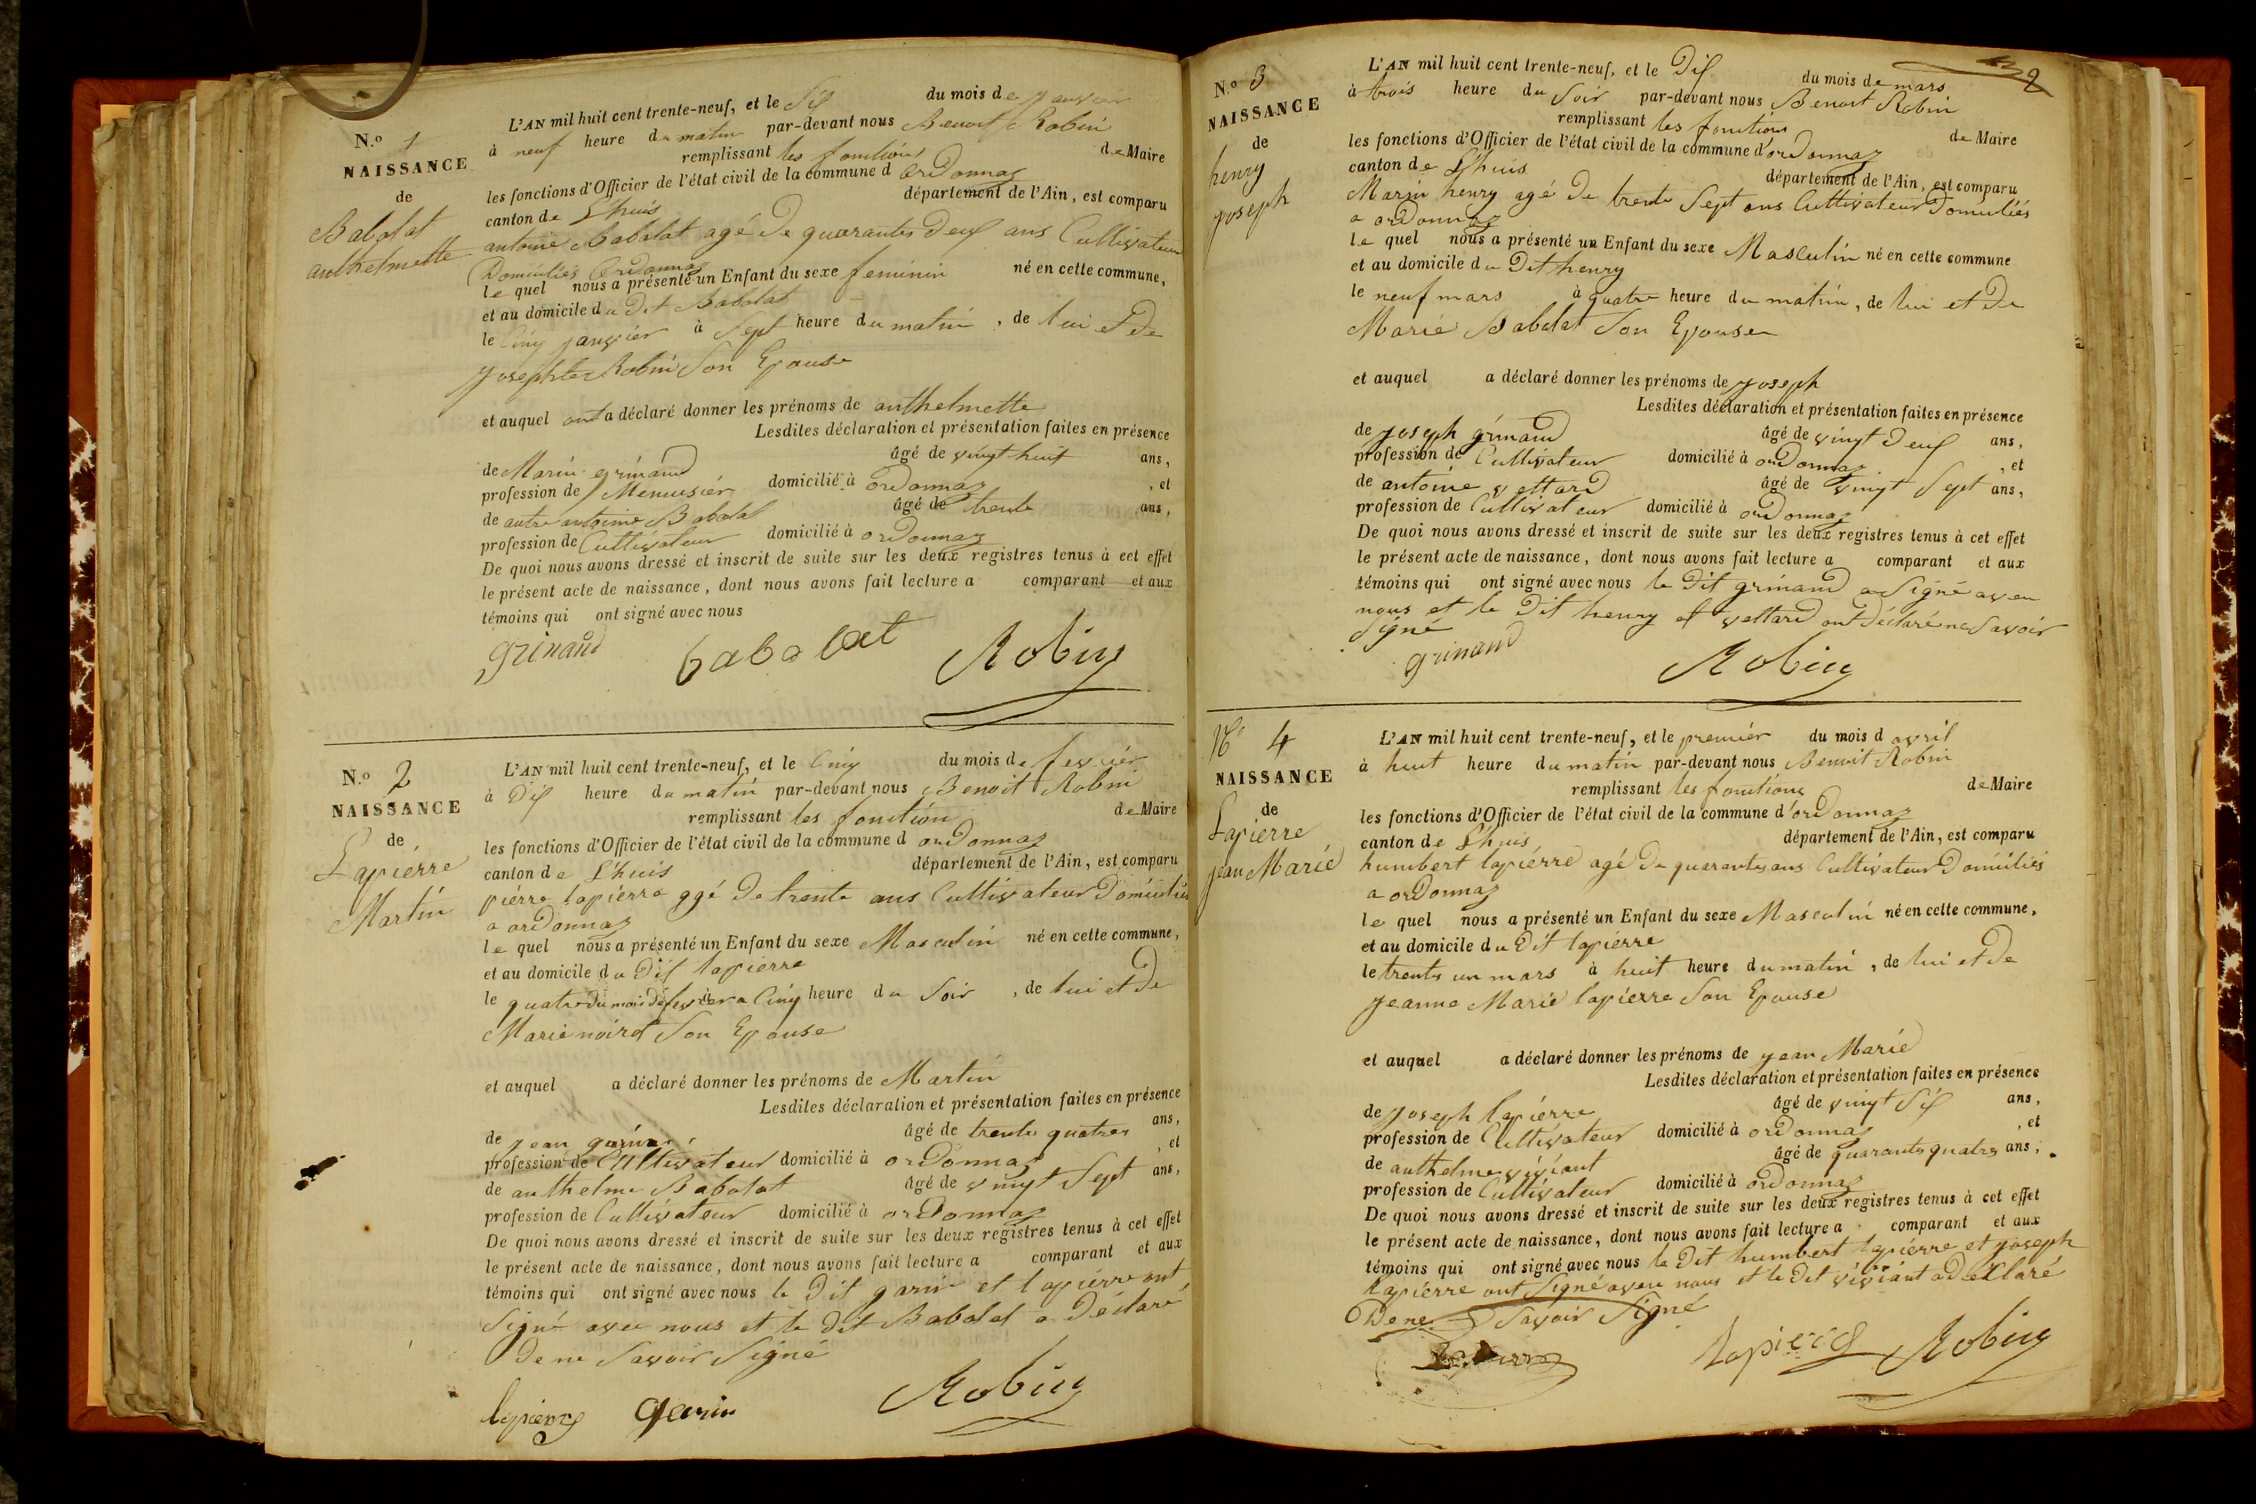 N.º 1
NAISSANCE
de
Babolat
anthelmette
L'AN mil huit cent trente-neuf, et le Six du mois de janvier
à neuf heure du matin par-devant nous Benoit Robin
remplissant les fonctions de Maire
les fonctions d'Officier de l'état civil de la commune d ordonnaz
canton de L'huis département de l'Ain, est comparu
antoine Babolat agé De quarantes Deux ans Cultivateur
Domiciliés ordonnaz
le quel nous a présenté un Enfant du sexe feminin né en cette commune,
et au domicile du Dit Babolat
le Cinq janvier à Sept heure du matin, de lui et De
josephte Robin Son Epouse
et auquel a déclaré donner les prénoms de anthelmette
Lesdites déclaration et présentation faites en présence
de Marin grinand âgé de vingt huit ans,
profession de Menuisier domicilié à ordonnaz, et
de autre antoine Babolat âgé de trente ans,
profession de Cultivateur domicilié à ordonnaz
De quoi nous avons dressé et inscrit de suite sur les deux registres tenus à cet effet
le présent acte de naissance, dont nous avons fait lecture a comparant et aux
témoins qui ont signé avec nous
grinand babolat Robin
N.º 2
NAISSANCE
de
Lapiérre
Martin
L'AN mil huit cent trente-neuf, et le Cinq du mois de fevriér
à Dix heure du matin par-devant nous Benoit Robin
remplissant les fonction de Maire
les fonctions d'Officier de l'état civil de la commune d ordonnaz
canton de L'huis département de l'Ain, est comparu
piérre lapiérre agé De trente ans Cultivateur Domicilié
a ordonnaz
le quel nous a présenté un Enfant du sexe Masculin né en cette commune,
et au domicile du Dit lapierre
le quatre du mois De fevriér a Cinq heure du Soir, de lui et De
Marie noirot Son Epouse
et auquel a déclaré donner les prénoms de Martin
Lesdites déclaration et présentation faites en présence
de jean garin âgé de trente quatres ans,
profession de Cultivateur domicilié à ordonnaz, et
de anthelme Babolat âgé de vingt Sept ans,
profession de Cultivateur domicilié à ordonnaz
De quoi nous avons dressé et inscrit de suite sur les deux registres tenus à cet effet
le présent acte de naissance, dont nous avons fait lecture a comparant et aux
témoins qui ont signé avec nous le Dit garin et lapiérre ont
Signé avec nous et le Dit Babolat a Déclaré
De ne Savoir Signé
lapierre garin Robin
2
N.º 3
NAISSANCE
de
henry
joseph
L'AN mil huit cent trente-neuf, et le Dix du mois de mars
à trois heure du Soir par-devant nous Benoit Robin
remplissant les fonctions de Maire
les fonctions d'Officier de l'état civil de la commune d'ordonnaz
canton de L'huis département de l'Ain, est comparu
Marin henry agé De trente Sept ans Cultivateur Domiciliés
a ordonnaz
le quel nous a présenté un Enfant du sexe Masculin né en cette commune
et au domicile du Dit henry
le neuf mars à quatre heure du matin, de lui et De
Marie Babolat Son Epouse
et auquel a déclaré donner les prénoms de joseph
Lesdites déclaration et présentation faites en présence
de joseph grinand âgé de vingt Deux ans,
profession de Cultivateur domicilié à ordonnaz, et
de antoine vettard âgé de vingt Sept ans,
profession de Cultivateur domicilié à ordonnaz
De quoi nous avons dressé et inscrit de suite sur les deux registres tenus à cet effet
le présent acte de naissance, dont nous avons fait lecture a comparant et aux
témoins qui ont signé avec nous le Dit grinand a Signé avec
nous et le Dit henry et vettard ont Déclaré ne Savoir
Signé
grinand Robin
Nº 4
NAISSANCE
de
Lapierre
jean Marié
L'AN mil huit cent trente-neuf, et le premiér du mois d avril
à huit heure du matin par-devant nous Benoit Robin
remplissant les fonctions de Maire
les fonctions d'Officier de l'état civil de la commune d'ordonnaz
canton de L'huis département de l'Ain, est comparu
humbert lapiérre agé De quarantes ans Cultivateur Domiciliés
a ordonnaz
le quel nous a présenté un Enfant du sexe Masculin né en cette commune,
et au domicile du Dit lapiérre
le trente un mars à huit heure du matin, de lui et De
jeanne Marié lapierre Son Epouse
et auquel a déclaré donner les prénoms de jean Marié
Lesdites déclaration et présentation faites en présence
de joseph lapiérre âgé de vingt Six ans,
profession de Cultivateur domicilié à ordonnaz, et
de anthelme viviant âgé de quarantes quatres ans,
profession de Cultivateur domicilié à ordonnaz
De quoi nous avons dressé et inscrit de suite sur les deux registres tenus à cet effet
le présent acte de naissance, dont nous avons fait lecture a comparant et aux
témoins qui ont signé avec nous le Dit humbert lapiérre et joseph
lapiérre ont Signé avec nous et le Dit viviant a déclaré
De ne Savoir Signé
lapierre Robin